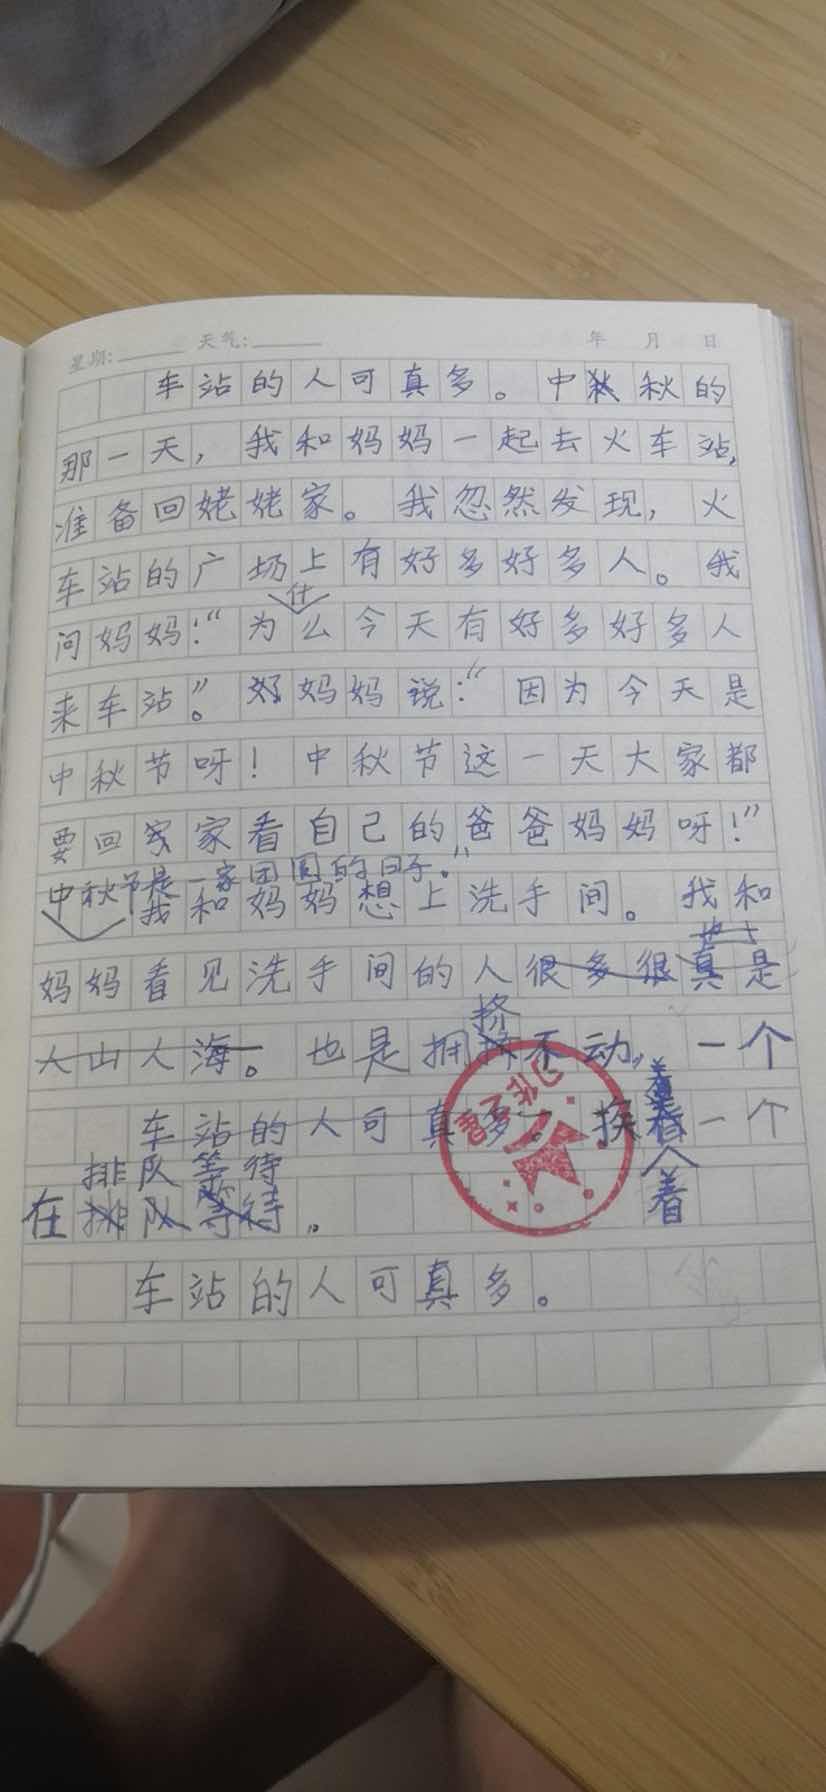 星期: 天气: 年 月 日
车站的人可真多。中秋秋的
那一天，我和妈妈一起去火车站，
准备回姥姥家。我忽然发现，火
车站的广场上有好多好多人。我
什
问妈妈：“为么今天有好多好多人
来车站”。妈妈说：“因为今天是
中秋节呀！中秋节这一天大家都
要回家家看自己的爸爸妈妈呀！”
中秋节是一家团圆的日子.”
我和妈妈想上洗手间。我和
也
妈妈看见洗手间的人很多很真是
挤
人山人海。也是拥挤不动，一个
着
车站的人可真多。挨着一个
排队等待
在排队等待。
着
车站的人可真多。